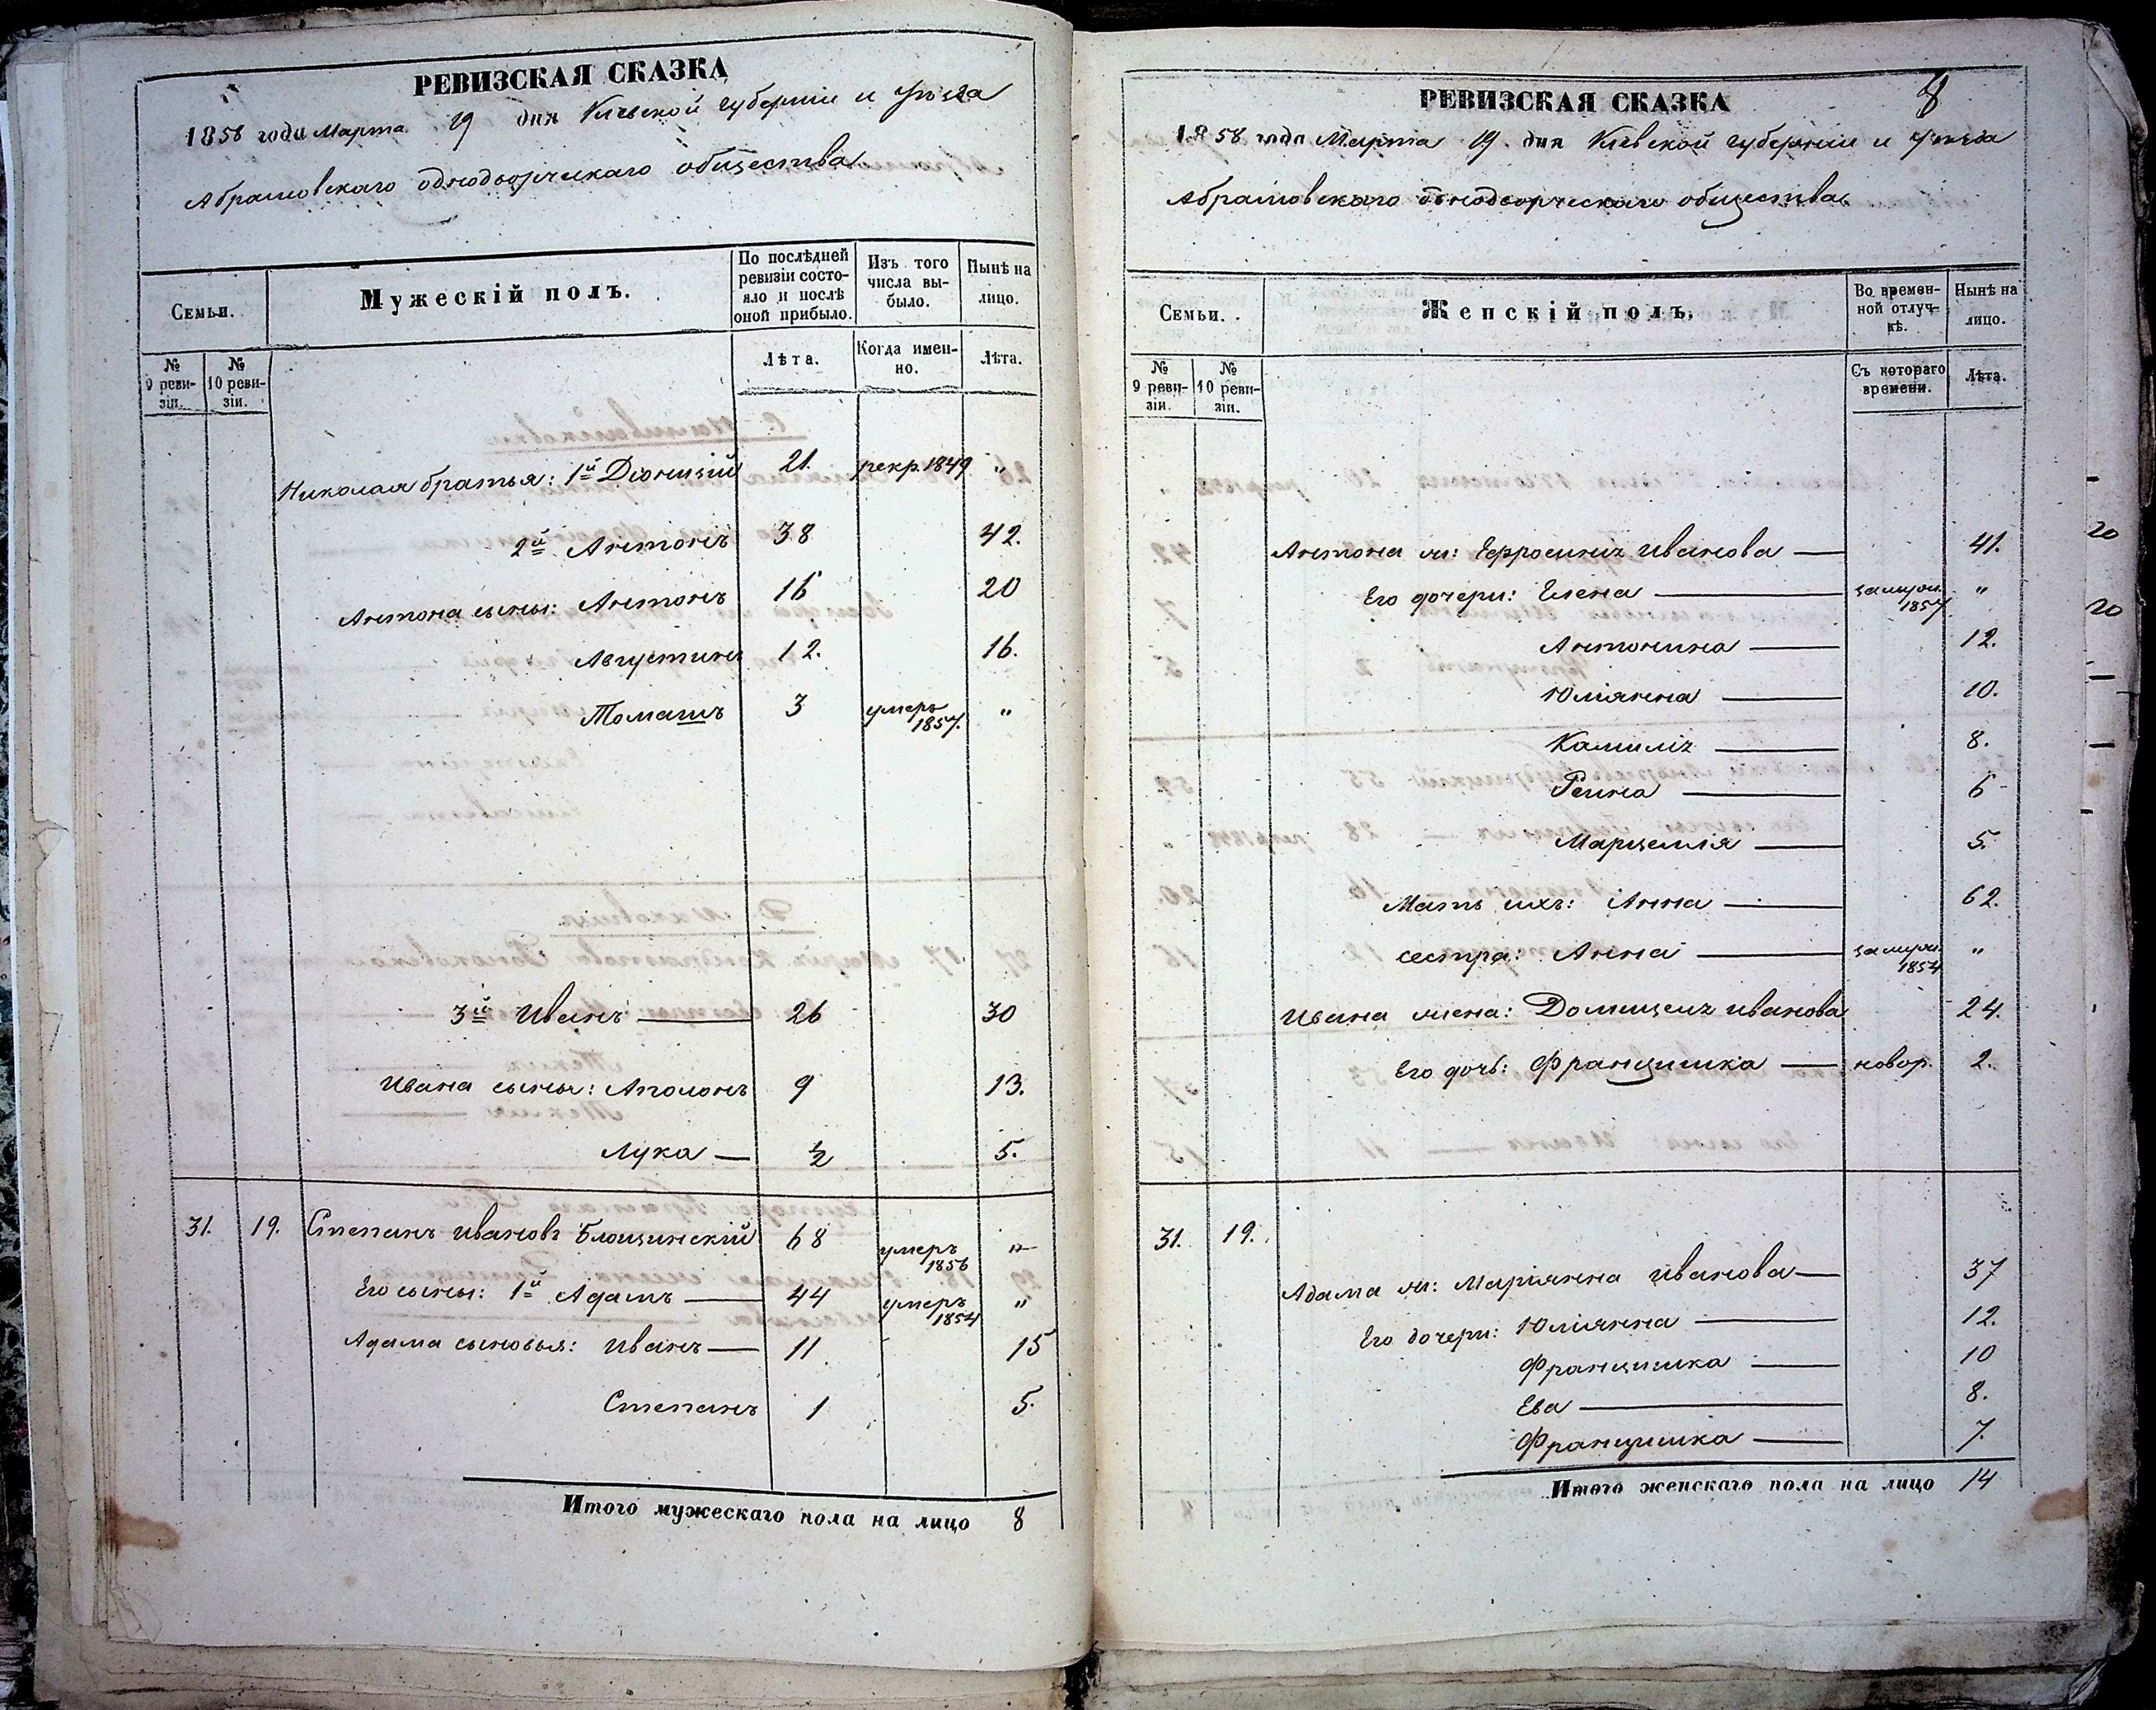 РЕВИЗСКАЯ СКАЗКА
1858 года Марта 19 дня Кіевской губерніи и уѣзда
Абрамовскаго однодворческаго общества.
Семьи.
Мужескій полъ.
По послѣдней ревизіи состояло и послѣ оной прибыло.
Изъ того числа выбыло.
Нынѣ на лицо.
№ 9 ревизіи.
№ 10 ревизіи.
Лѣта.
Когда именно.
Лѣта.
Николая братья: 1й Діонизій 21. рекр. 1849 "
2й Антонъ 38 42.
Антона сыны: Антонъ 16 20
Августинъ 12. 16.
Томашъ 3 умеръ 1857. "
3й Иванъ — 26 30
Ивана сыны: Аполонъ 9 13.
Лука — ½ 5.
31. 19. Степанъ Ивановъ Блощинскій 68 умеръ 1856 "
Его сыны: 1й Адамъ — 44 умеръ 1854 "
Адама сыновья: Иванъ — 11 15
Степанъ 1 5.
Итого мужескаго пола на лицо 8
8
РЕВИЗСКАЯ СКАЗКА
1858 года Марта 19 дня Кіевской губерніи и уѣзда
Абрамовскаго однодворческаго общества.
Семьи.
Женскій полъ.
Во временной отлучкѣ.
Нынѣ на лицо.
№ 9 ревизіи.
№ 10 ревизіи.
Съ котораго времени.
Лѣта.
Антона ж: Ефросинія Иванова — 41.
Его дочери: Елена — замуж. 1857 "
Антонина — 12.
Юліянна — 10.
Камилія — 8.
Реина — 6
Марцелля — 5.
Мать ихъ: Анна — 62.
сестра: Анна — замуж. 1854 "
Ивана жена: Домицеля Иванова 24.
Его дочь: Францишка — новор. 2.
31. 19.
Адама ж: Маріянна Иванова — 37
Его дочери: Юліянна — 12.
Францишка — 10
Ева — 8.
Францишка — 7.
Итого женскаго пола на лицо 14
20
20